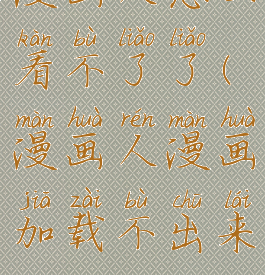 kàn bù liǎo liǎo
看不了了(
màn huà rén màn huà
漫画人漫画
jiā zài bù chū lái
加载不出来